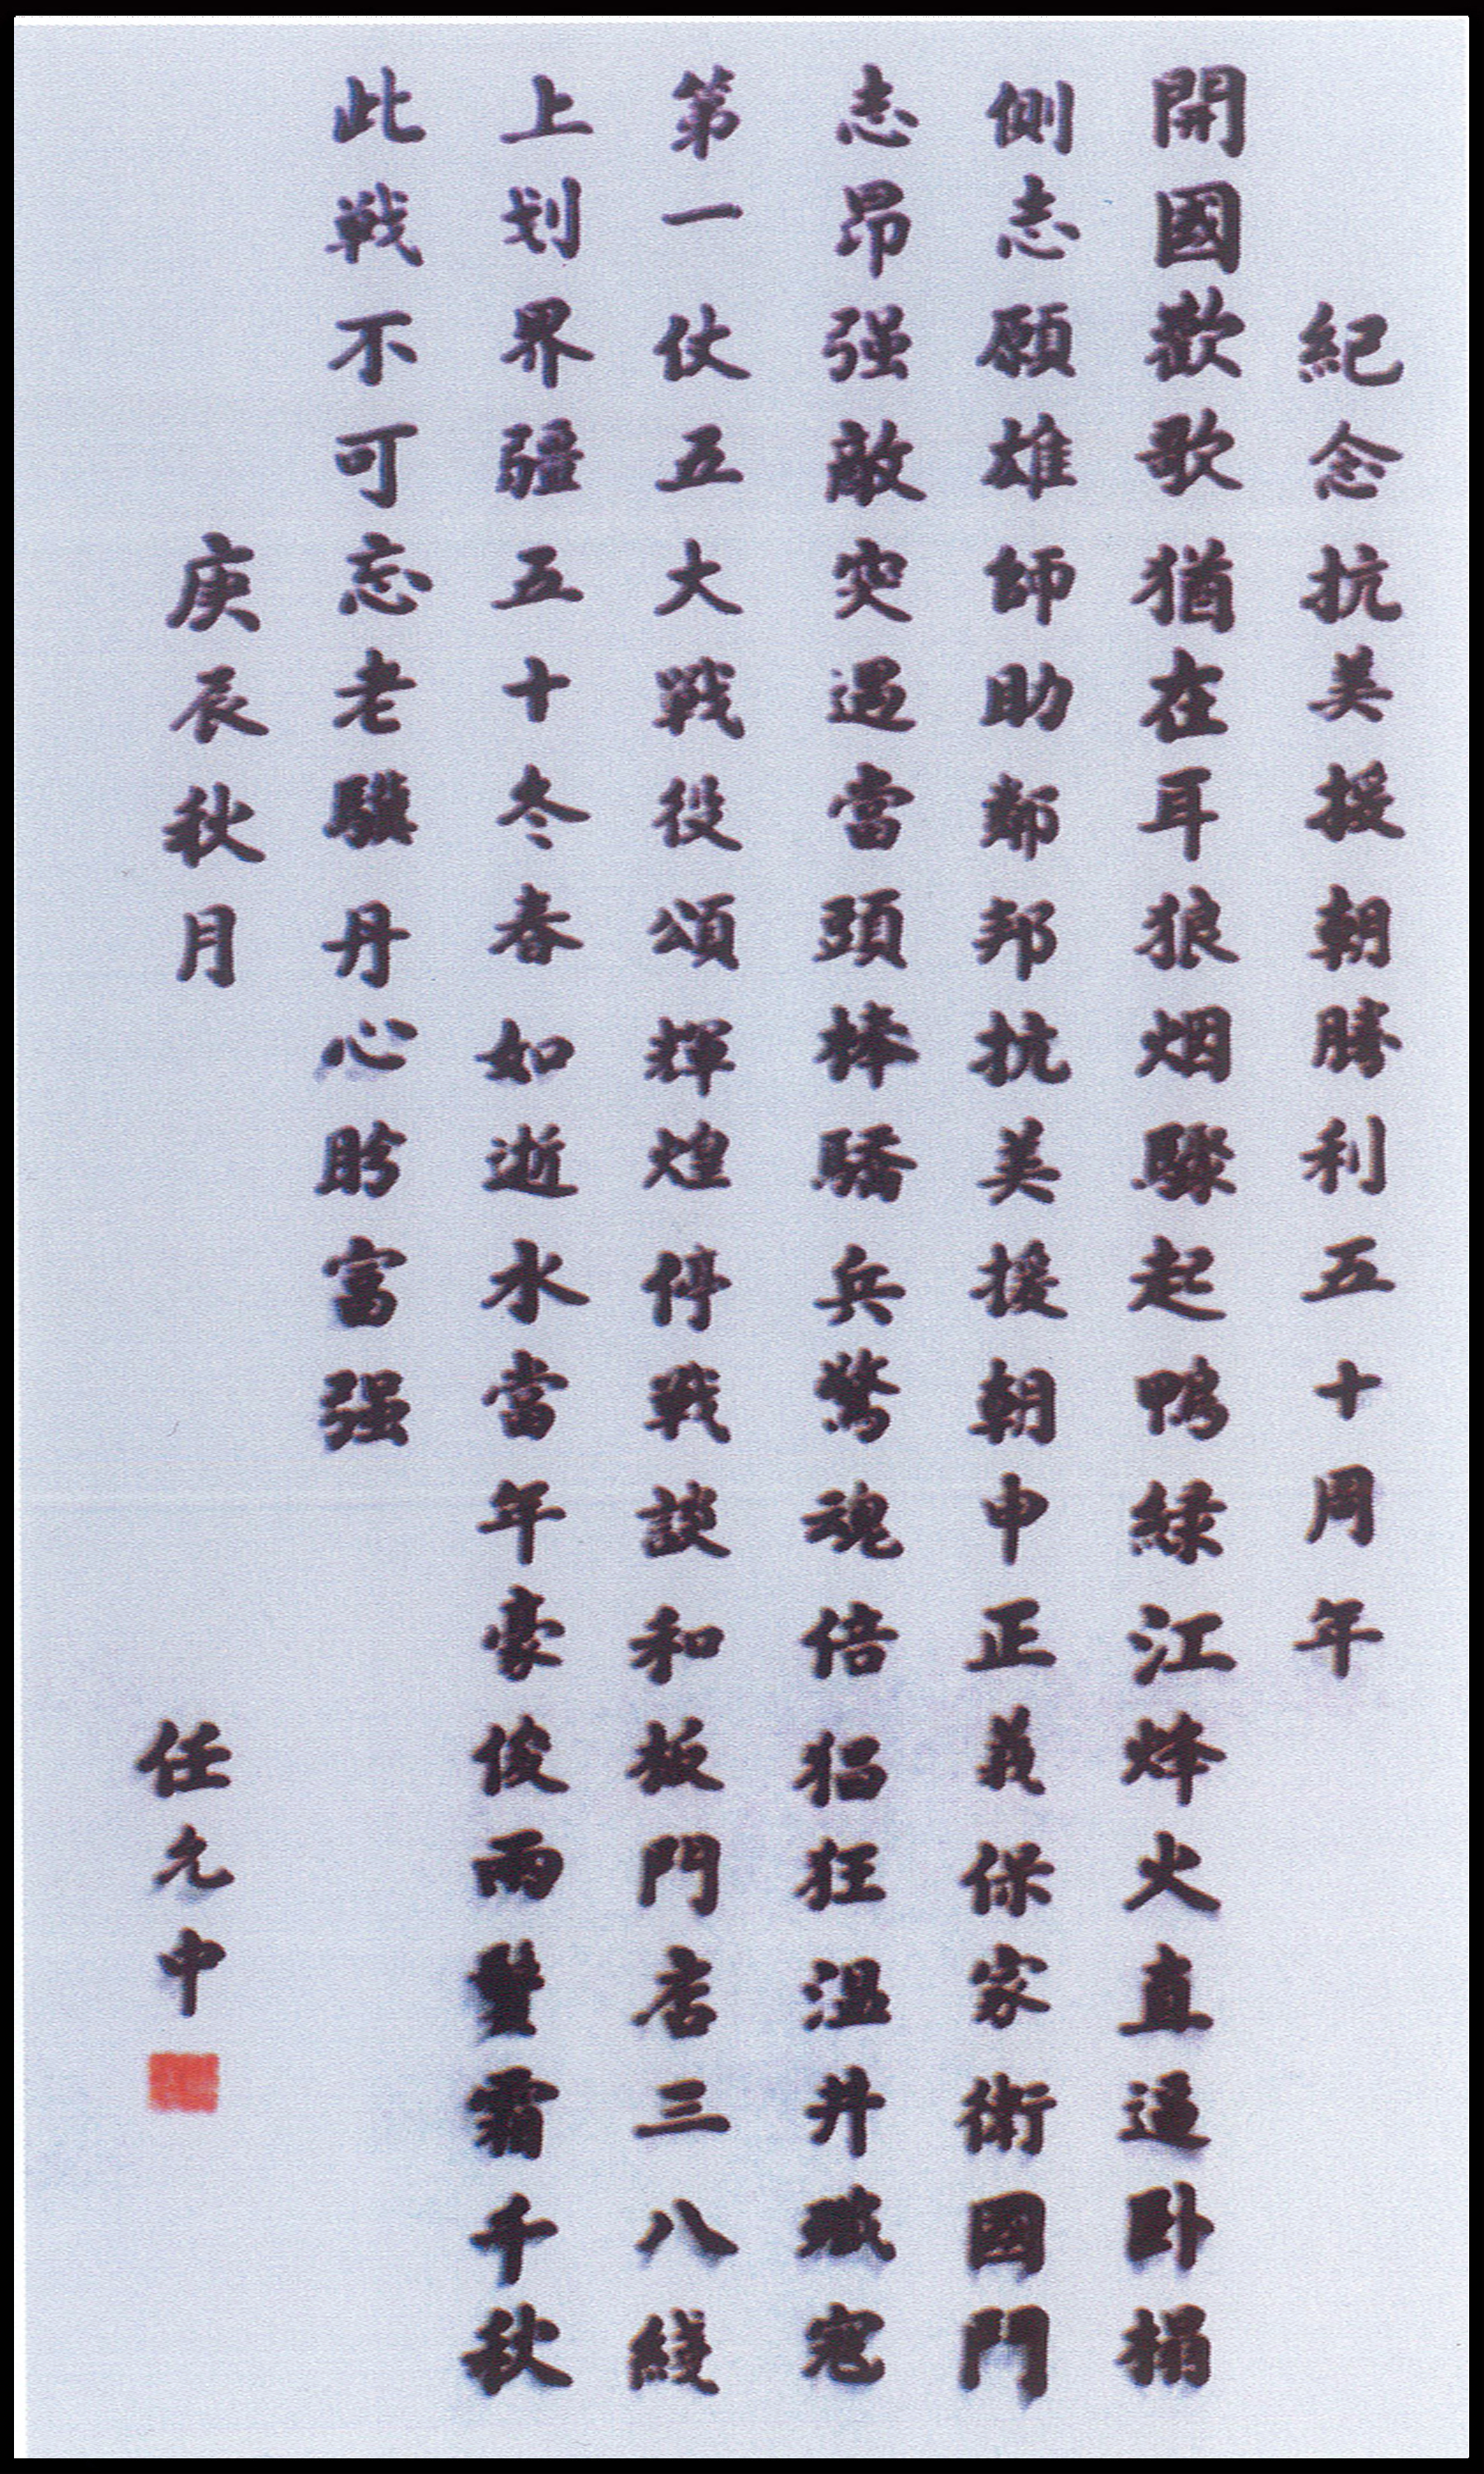 紀念抗美援朝勝利五十周年
開國歡歌猶在耳狼烟驟起鴨緑江烽火直逼卧榻
側志願雄師助鄰邦抗美援朝申正義保家衛國鬥
志昂强敵突遇當頭棒驕兵驚魂倍猖狂温井殲寇
第一仗五大戰役頌輝煌停戰談和板門店三八綫
上划界疆五十冬春如逝水當年豪俊兩鬢霜千秋
此戰不可忘老驥丹心盼富强
庚辰秋月
任允中